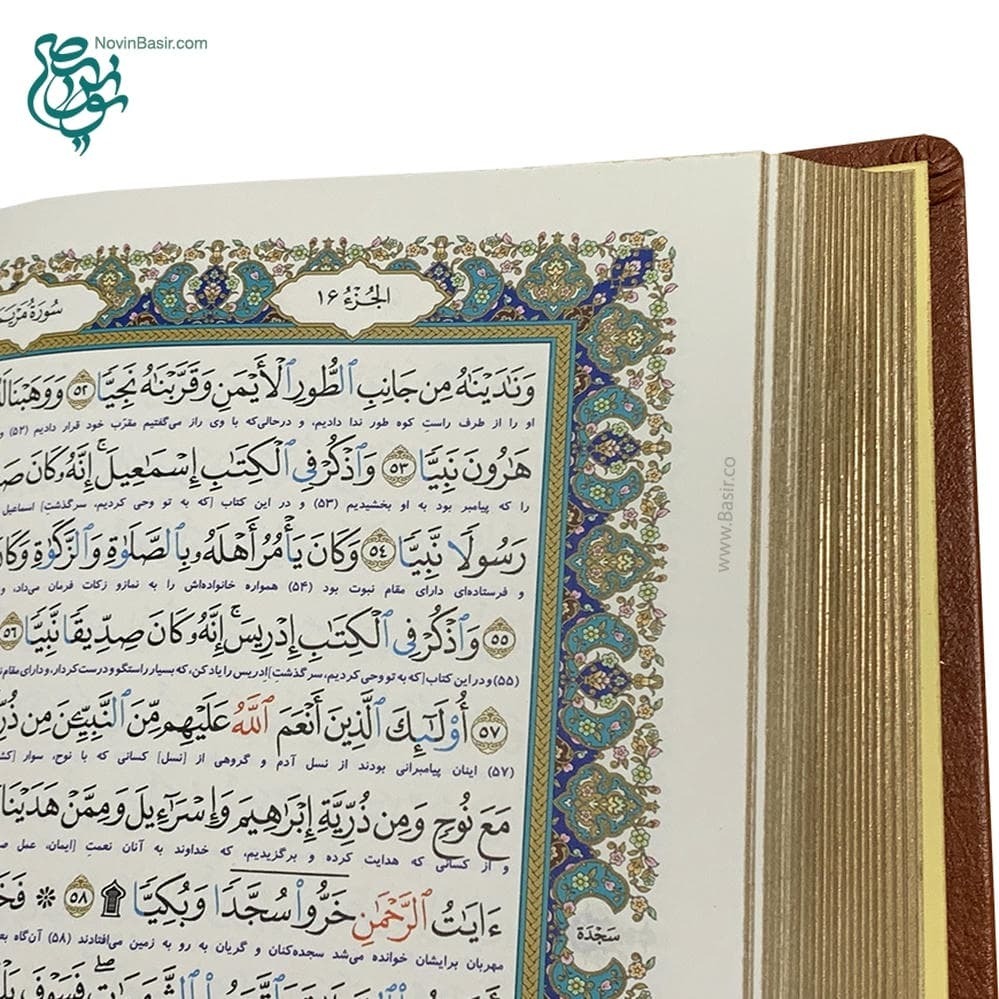 NovinBasir.com
الجُزْءُ ١٦
سُورَةُ مَرْیَم
وَنَٰدَیْنَٰهُ مِن جَانِبِ ٱلطُّورِ ٱلْأَیْمَنِ وَقَرَّبْنَٰهُ نَجِیًّا ﴿٥٢﴾ وَوَهَبْنَا
او را از طرف راستِ کوه طور ندا دادیم، و درحالی‌که با وی راز می‌گفتیم مقرّب خود قرار دادیم (۵۲) و
هَٰرُونَ نَبِیًّا ﴿٥٣﴾ وَٱذْكُرْ فِی ٱلْكِتَٰبِ إِسْمَٰعِیلَ ۚ إِنَّهُۥ كَانَ
را که پیامبر بود به او بخشیدیم (۵۳) و در این کتاب [که به تو وحی کردیم، سرگذشتِ] اسماعیل
رَسُولًا نَّبِیًّا ﴿٥٤﴾ وَكَانَ یَأْمُرُ أَهْلَهُۥ بِٱلصَّلَوٰةِ وَٱلزَّكَوٰةِ وَكَانَ
و فرستاده‌ای دارای مقام نبوت بود (۵۴) همواره خانواده‌اش را به نماز و زکات فرمان می‌داد، و
﴿٥٥﴾ وَٱذْكُرْ فِی ٱلْكِتَٰبِ إِدْرِیسَ ۚ إِنَّهُۥ كَانَ صِدِّیقًا نَّبِیًّا ﴿٥٦﴾
(۵۵) و در این کتاب [که به تو وحی کردیم، سرگذشتِ] ادریس را یاد کن، که بسیار راستگو و درست کردار، و دارای مقام
﴿٥٧﴾ أُو۟لَٰٓئِكَ ٱلَّذِینَ أَنْعَمَ ٱللَّهُ عَلَیْهِم مِّنَ ٱلنَّبِیِّۦنَ مِن
(۵۷) اینان پیامبرانی بودند از نسل آدم و گروهی از [نسل] کسانی که با نوح، سوار
مَعَ نُوحٍ وَمِن ذُرِّیَّةِ إِبْرَٰهِیمَ وَإِسْرَٰٓءِیلَ وَمِمَّنْ هَدَیْنَا
و از کسانی که هدایت کرده و برگزیدیم، که خداوند به آنان نعمتِ [ایمان، عمل
ءَایَٰتُ ٱلرَّحْمَٰنِ خَرُّوا۟ سُجَّدًا وَبُكِیًّا ۩ ﴿٥٨﴾ ۞
مهربان برایشان خوانده می‌شد سجده‌کنان و گریان به رو به زمین می‌افتادند (۵۸) آن‌گاه
سَجْدَة
فَسَوْفَ
www.Basir.co